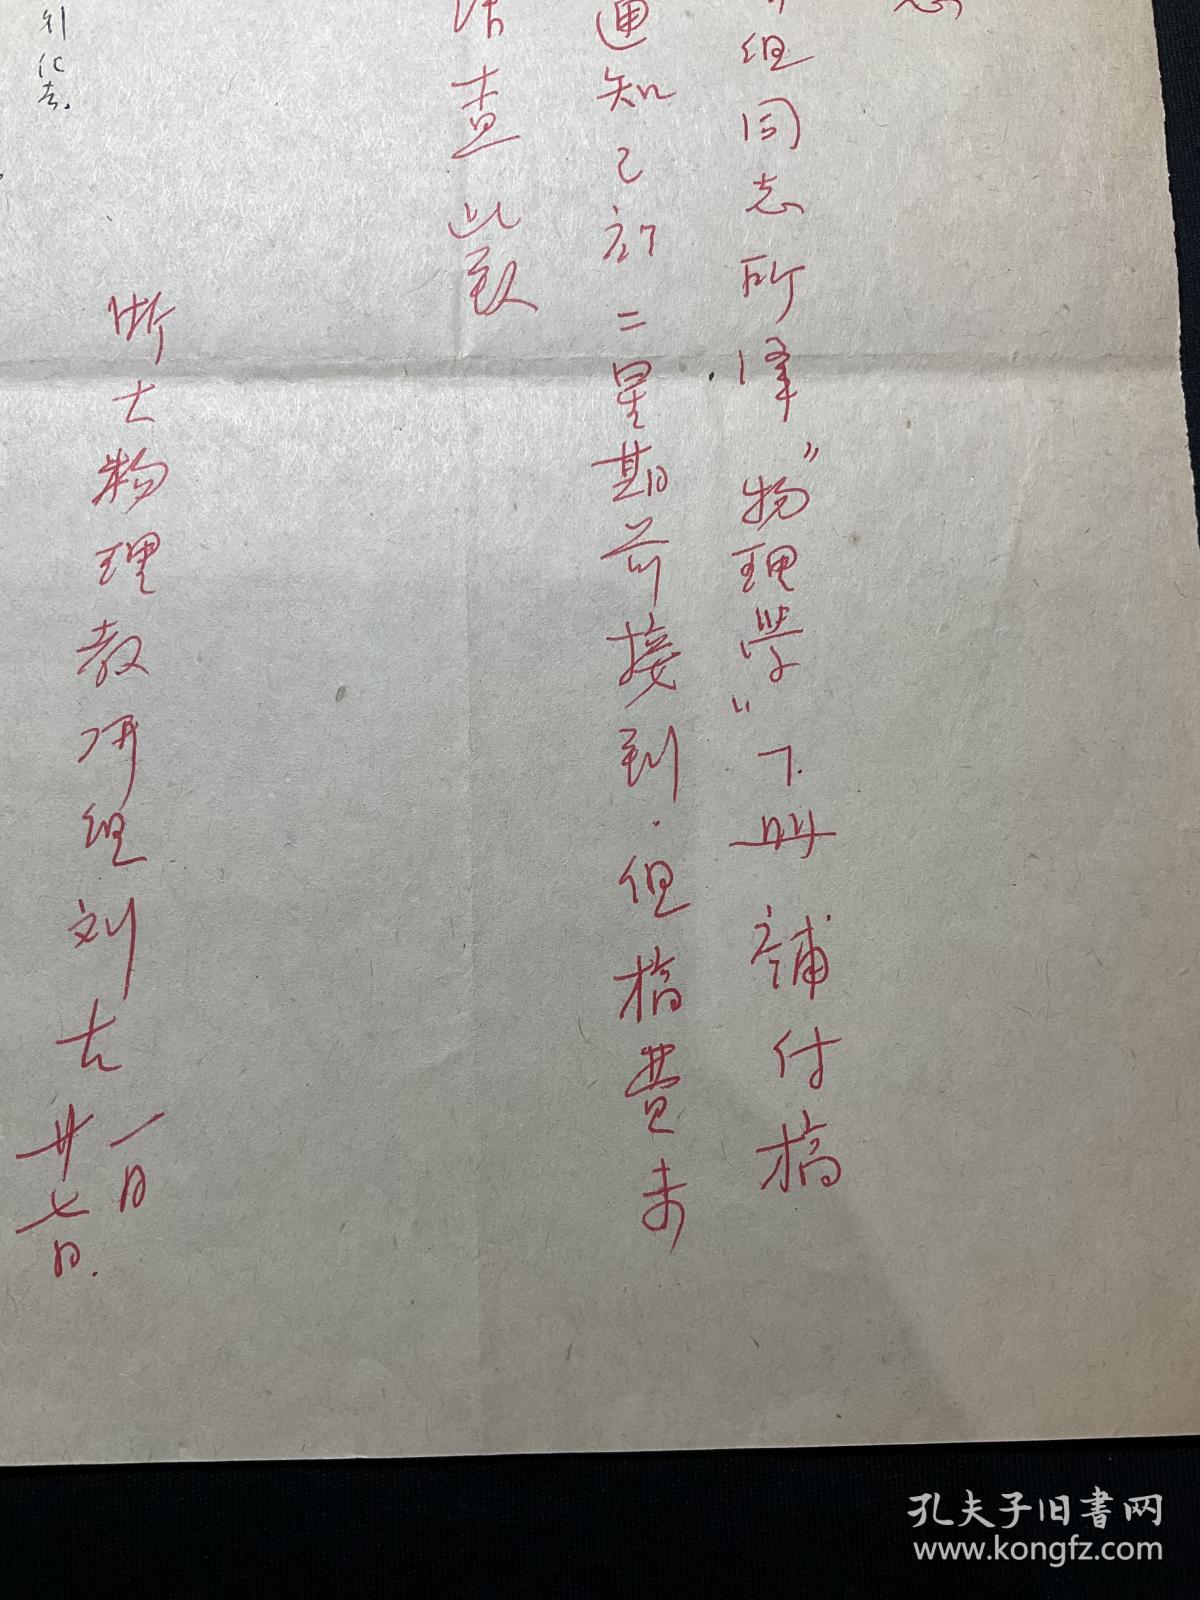 组同志所译"物理学"下册補付稿
通知已初二星期前接到.但稿费未
请查此致
浙大物理教研组刘古
一月
廿七日.
孔夫子旧書网
www.kongfz.com